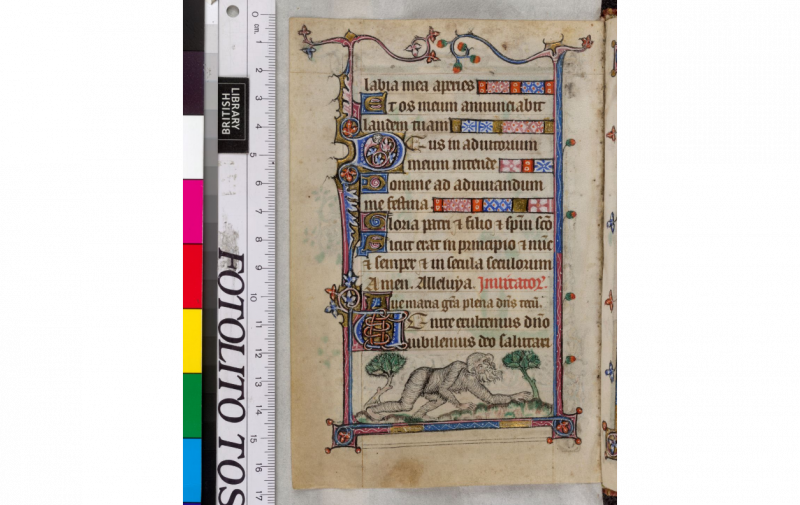 labia mea aperies
Et os meum annunciabit
laudem tuam
Deus in adiutorium
meum intende
Domine ad adiuuandum
me festina
Gloria patri ⁊ filio ⁊ spũi scõ
Sicut erat in principio ⁊ nũc
⁊ semper ⁊ in secula seculorum
Amen. Alleluya. Inuitator̃.
Aue maria grã plena dñs tecũ.
Uenite exultemus dño
iubilemus deo salutari
BRITISH
LIBRARY
FOTOLITO TOS
0 cm. 1 2 3 4 5 6 7 8 9 10 11 12 13 14 15 16 17